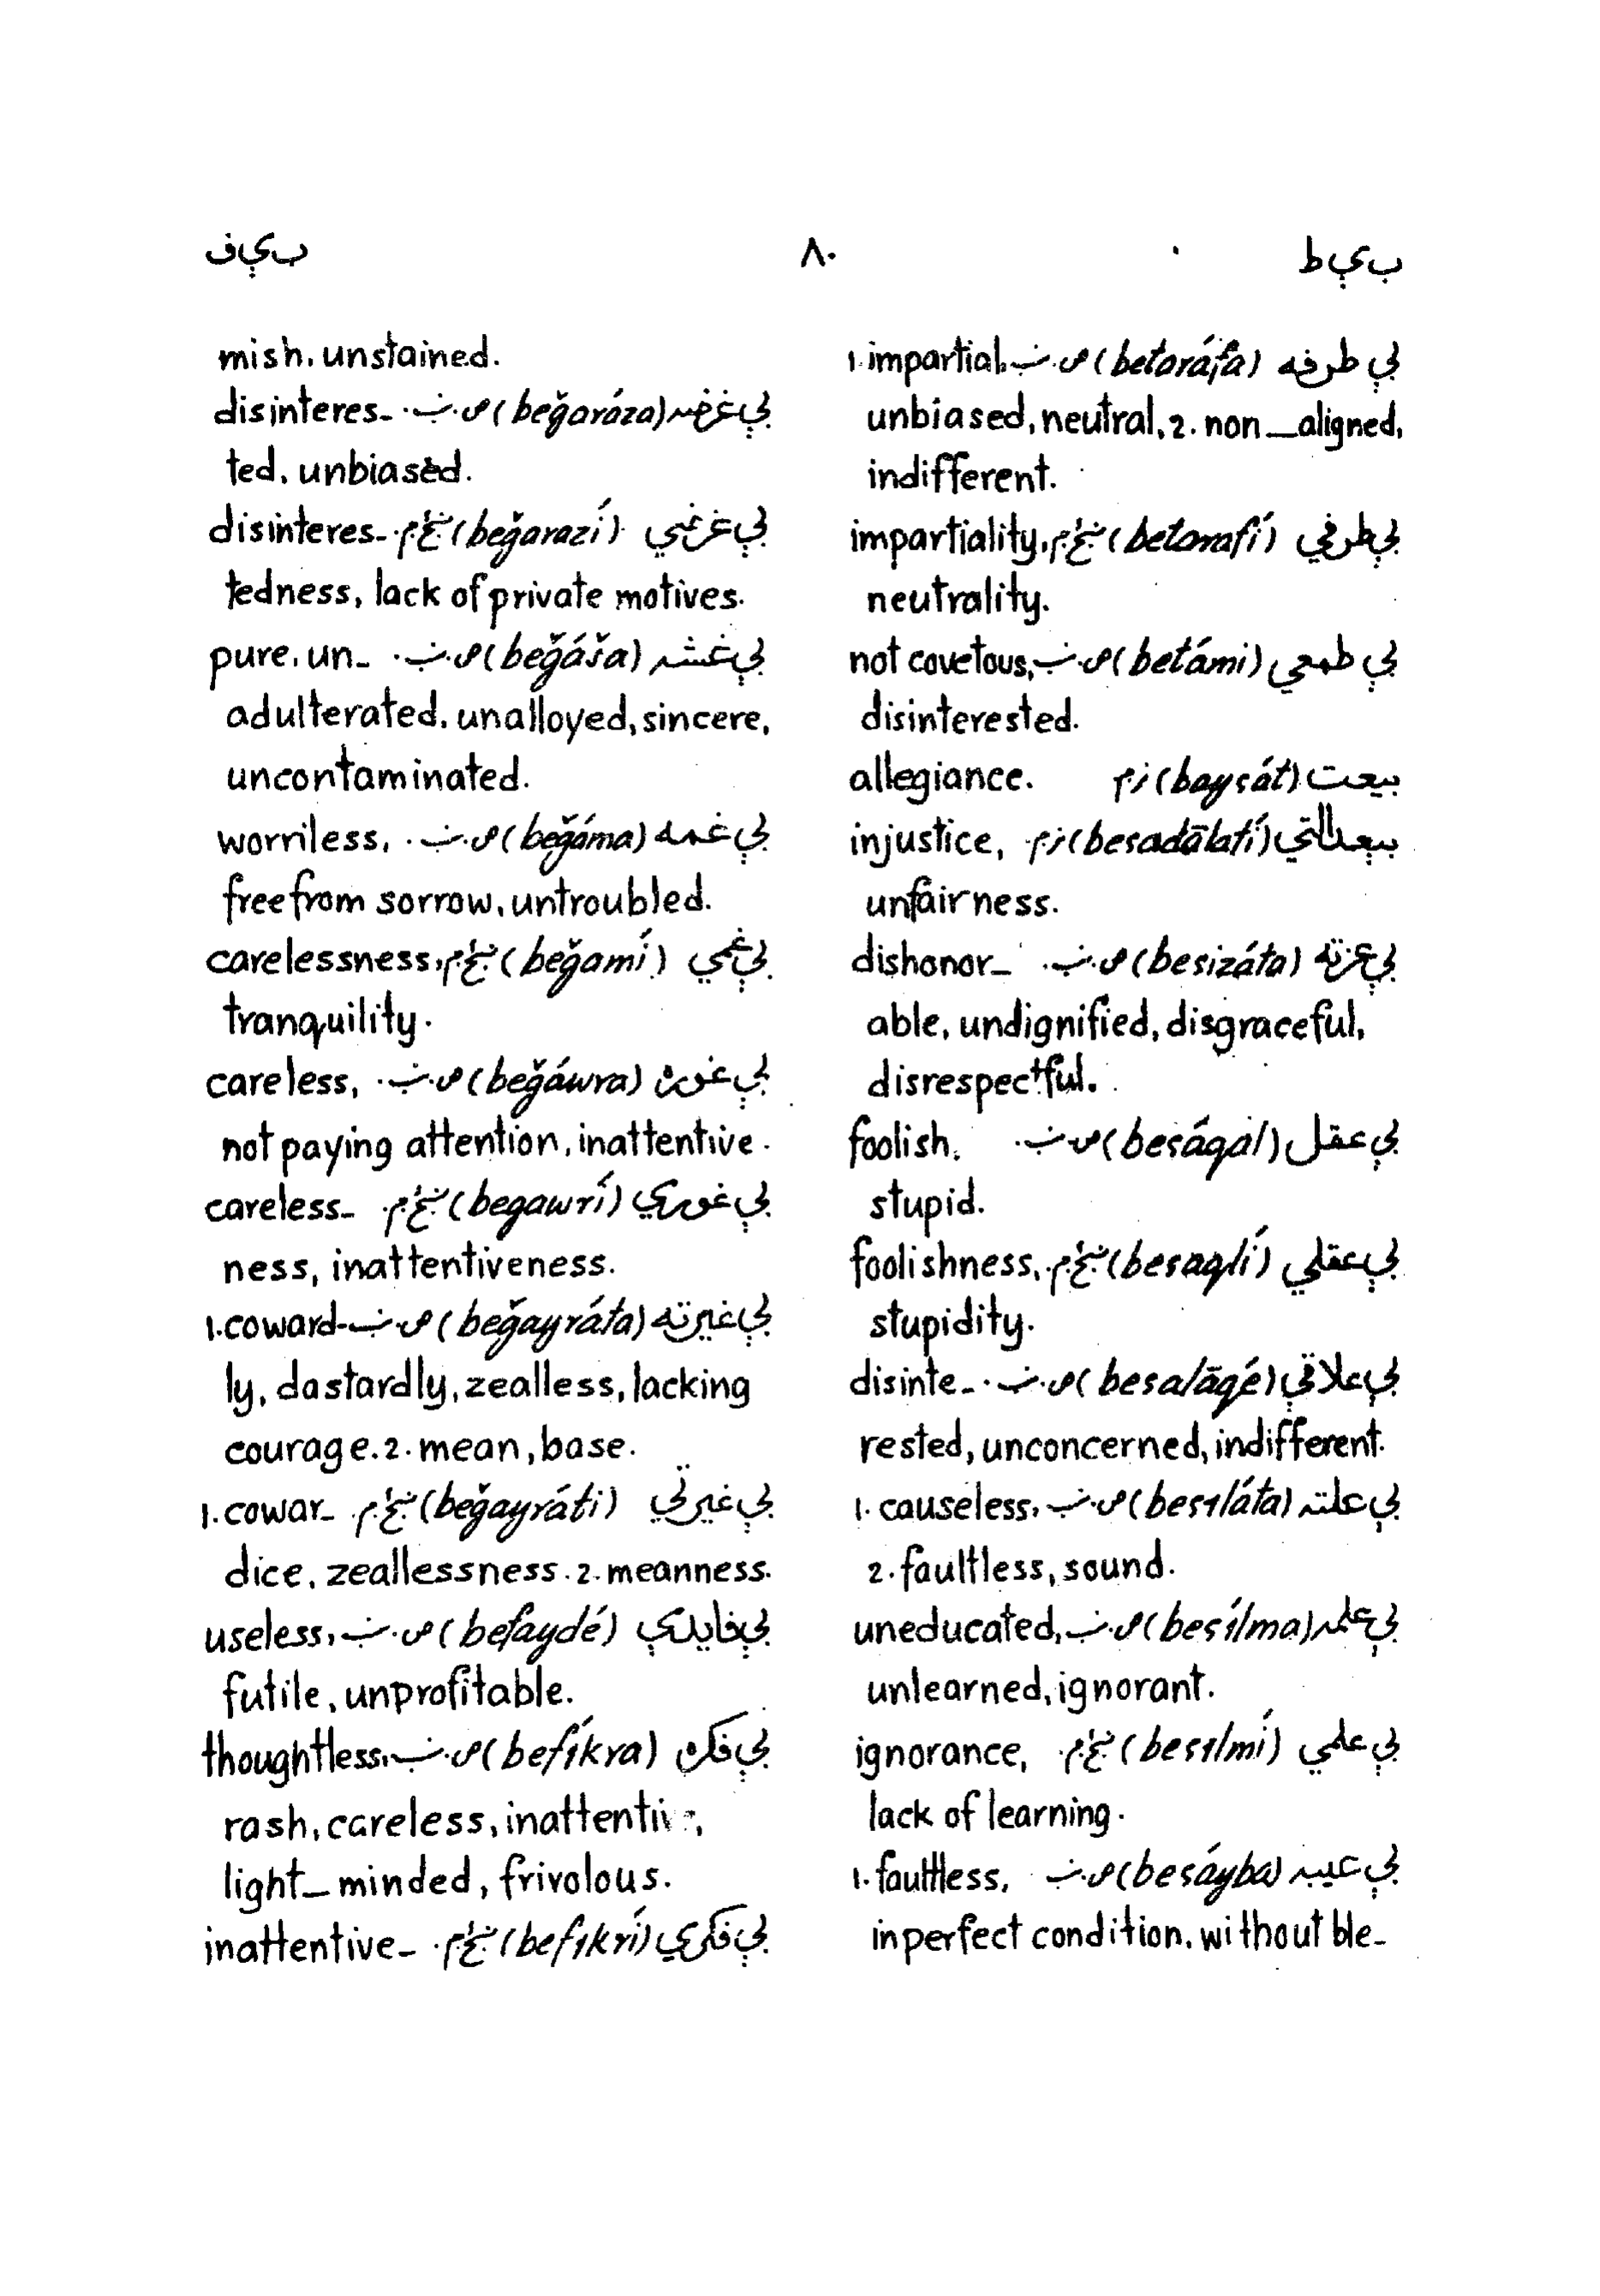 بېط ۸۰ بېف
بې طرفه (betaráfa) ص. 1. impartial,
unbiased, neutral, 2. non_aligned,
indifferent.
بې طرفي (betarafí) impartiality,
neutrality.
بې طمعي (betámi) ص. not covetous,
disinterested.
بيعت (baysát) allegiance.
بېعدالتي (besadālatí) injustice,
unfairness.
بې عزته (besizáta) ص. dishonor_
able, undignified, disgraceful,
disrespectful.
بې عقل (beságal) ص. foolish,
stupid.
بې عقلي (besaqlí) foolishness,
stupidity.
بې علاقې (besalāqé) ص. disinte_
rested, unconcerned, indifferent.
بې علته (besıláta) ص. 1. causeless,
2. faultless, sound.
بې علمه (besílma) ص. uneducated,
unlearned, ignorant.
بې علمي (besılmí) ignorance,
lack of learning.
بې عيبه (besáyba) ص. 1. faultless,
in perfect condition, without ble_
mish, unstained.
بې غرضه (beğaráza) ص. disinteres_
ted, unbiased.
بې غرضي (beğarazí) disinteres_
tedness, lack of private motives.
بې غشه (beğáša) ص. pure, un_
adulterated, unalloyed, sincere,
uncontaminated.
بې غمه (beğáma) ص. worriless,
free from sorrow, untroubled.
بې غمي (beğamí) carelessness,
tranquility.
بې غوره (beğáwra) ص. careless,
not paying attention, inattentive.
بې غوري (begawrí) careless_
ness, inattentiveness.
بې غيرته (beğayráta) ص. 1. coward_
ly, dastardly, zealless, lacking
courage. 2. mean, base.
بې غيرتي (beğayráti) 1. cowar_
dice, zeallessness. 2. meanness.
بې فايدې (befaydé) ص. useless,
futile, unprofitable.
بې فکره (befíkra) ص. thoughtless,
rash, careless,
light_minded, frivolous.
بې فکري (befıkrí) inattentive_